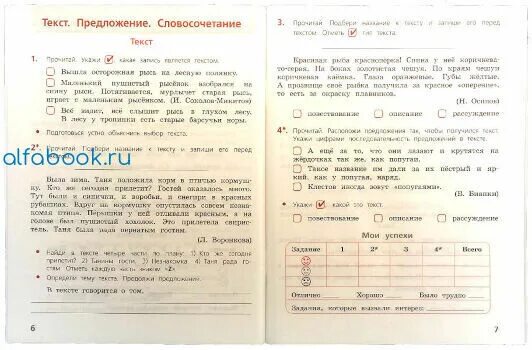 Текст. Предложение. Словосочетание
Текст
1. Прочитай. Укажи ✓, какая запись является текстом.
Вышла осторожная рысь на лесную полянку.
Маленький пушистый рысёнок взобрался на
спину рыси. Потягивается, мурлычет старая рысь,
играет с маленьким рысёнком. (И. Соколов-Микитов)
Всё видит, всё слышит рысь в глухом лесу.
В лесу у тропинки есть старые барсучьи норы.
Подготовься устно объяснить выбор текста.
2*. Прочитай. Подбери название к тексту и запиши его перед
текстом.
alfabook.ru
Была зима. Таня положила корм в птичью кормуш-
ку. Кто же сегодня прилетит? Гостей оказалось много.
Тут были и синички, и воробьи, и снегири в красных
рубашках. Вдруг на кормушку опустилась совсем незна-
комая птица. Пёрышки у ней отливали красным, а на
голове был пушистый хохолок. Это прилетела свирис-
тель. Таня была рада пернатым гостям.
(Л. Воронкова)
Найди в тексте четыре части по плану: 1) Кто же сегодня
прилетит? 2) Танины гости. 3) Незнакомка. 4) Таня рада го-
стям. Отметь каждую часть знаком «Z».
Определи тему текста. Продолжи предложение.
В тексте говорится о том,
6
3. Прочитай. Подбери название к тексту и запиши его перед
текстом. Отметь ✓ тип текста.
Красивая рыба краснопёрка! Спина у неё коричнева-
то-серая. На боках золотистая чешуя. По краям чешуи
коричневая каёмка. Глаза оранжевые. Губы жёлтые.
А прозвище своё рыбка получила за красное «оперение»,
то есть за окраску плавников.
(Н. Осипов)
повествование описание рассуждение
4*. Прочитай. Расположи предложения так, чтобы получился текст. Укажи
цифрами последовательность предложений в тексте.
А ещё за то, что они лазают и крутятся на
жёрдочках так же, как попугаи.
Такое название им дали за их пёстрый и яр-
кий, как у попугая, наряд.
Клестов иногда зовут «попугаями».
(В. Бианки)
Укажи ✓, какой это текст.
повествование описание рассуждение
Мои успехи
Задание 1 2* 3 4* Всего
Отлично Хорошо Было трудно
Задания, которые вызвали интерес
7